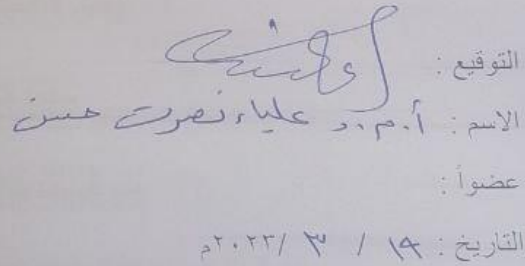 التوقيع :
الاسم : أ.م.د علياء نصرت حسن
عضواً :
التاريخ : ١٩ / ٣ / ٢٠٢٣م